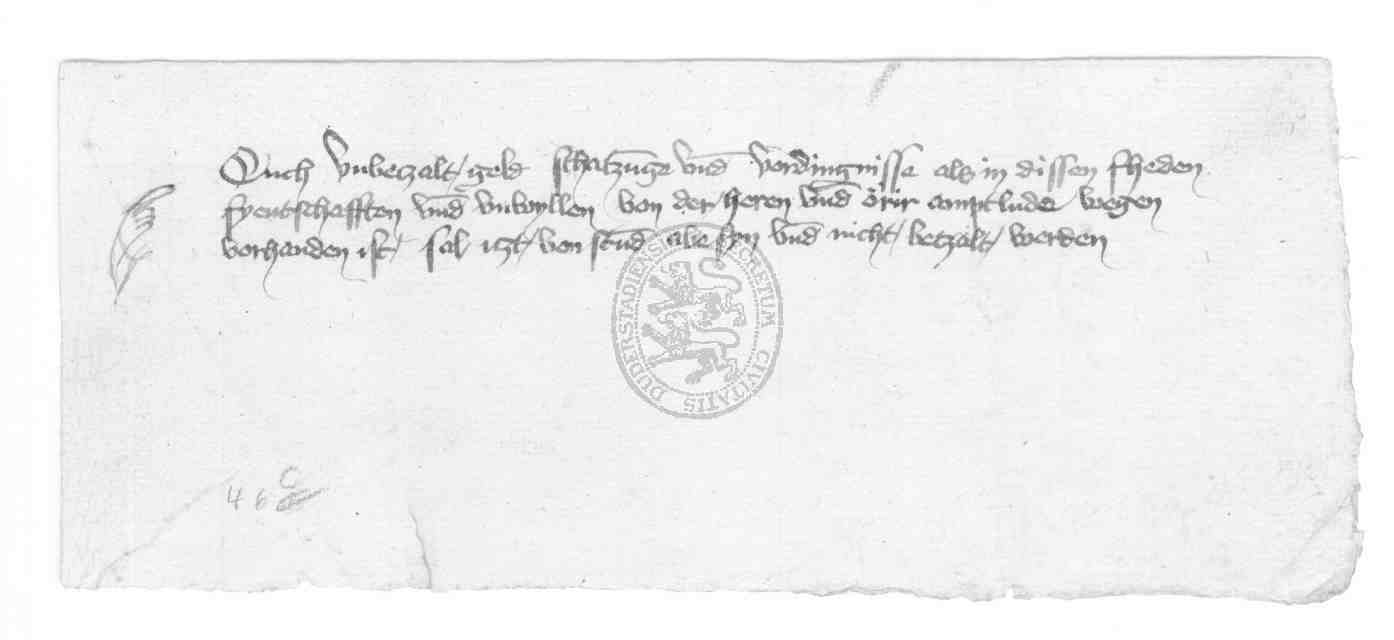 Ouch vnbeczalt geld schatzunge vnd vordingnisse als in dissen fheden
fyentschafften vnd vnwyllen von der heren vnd orir amptlude wegen
vorhanden ist sal itzt von stund abe syn vnd nicht betzalt werden
SECRETUM CIVITATIS DUDERSTADIENSIS
46 c